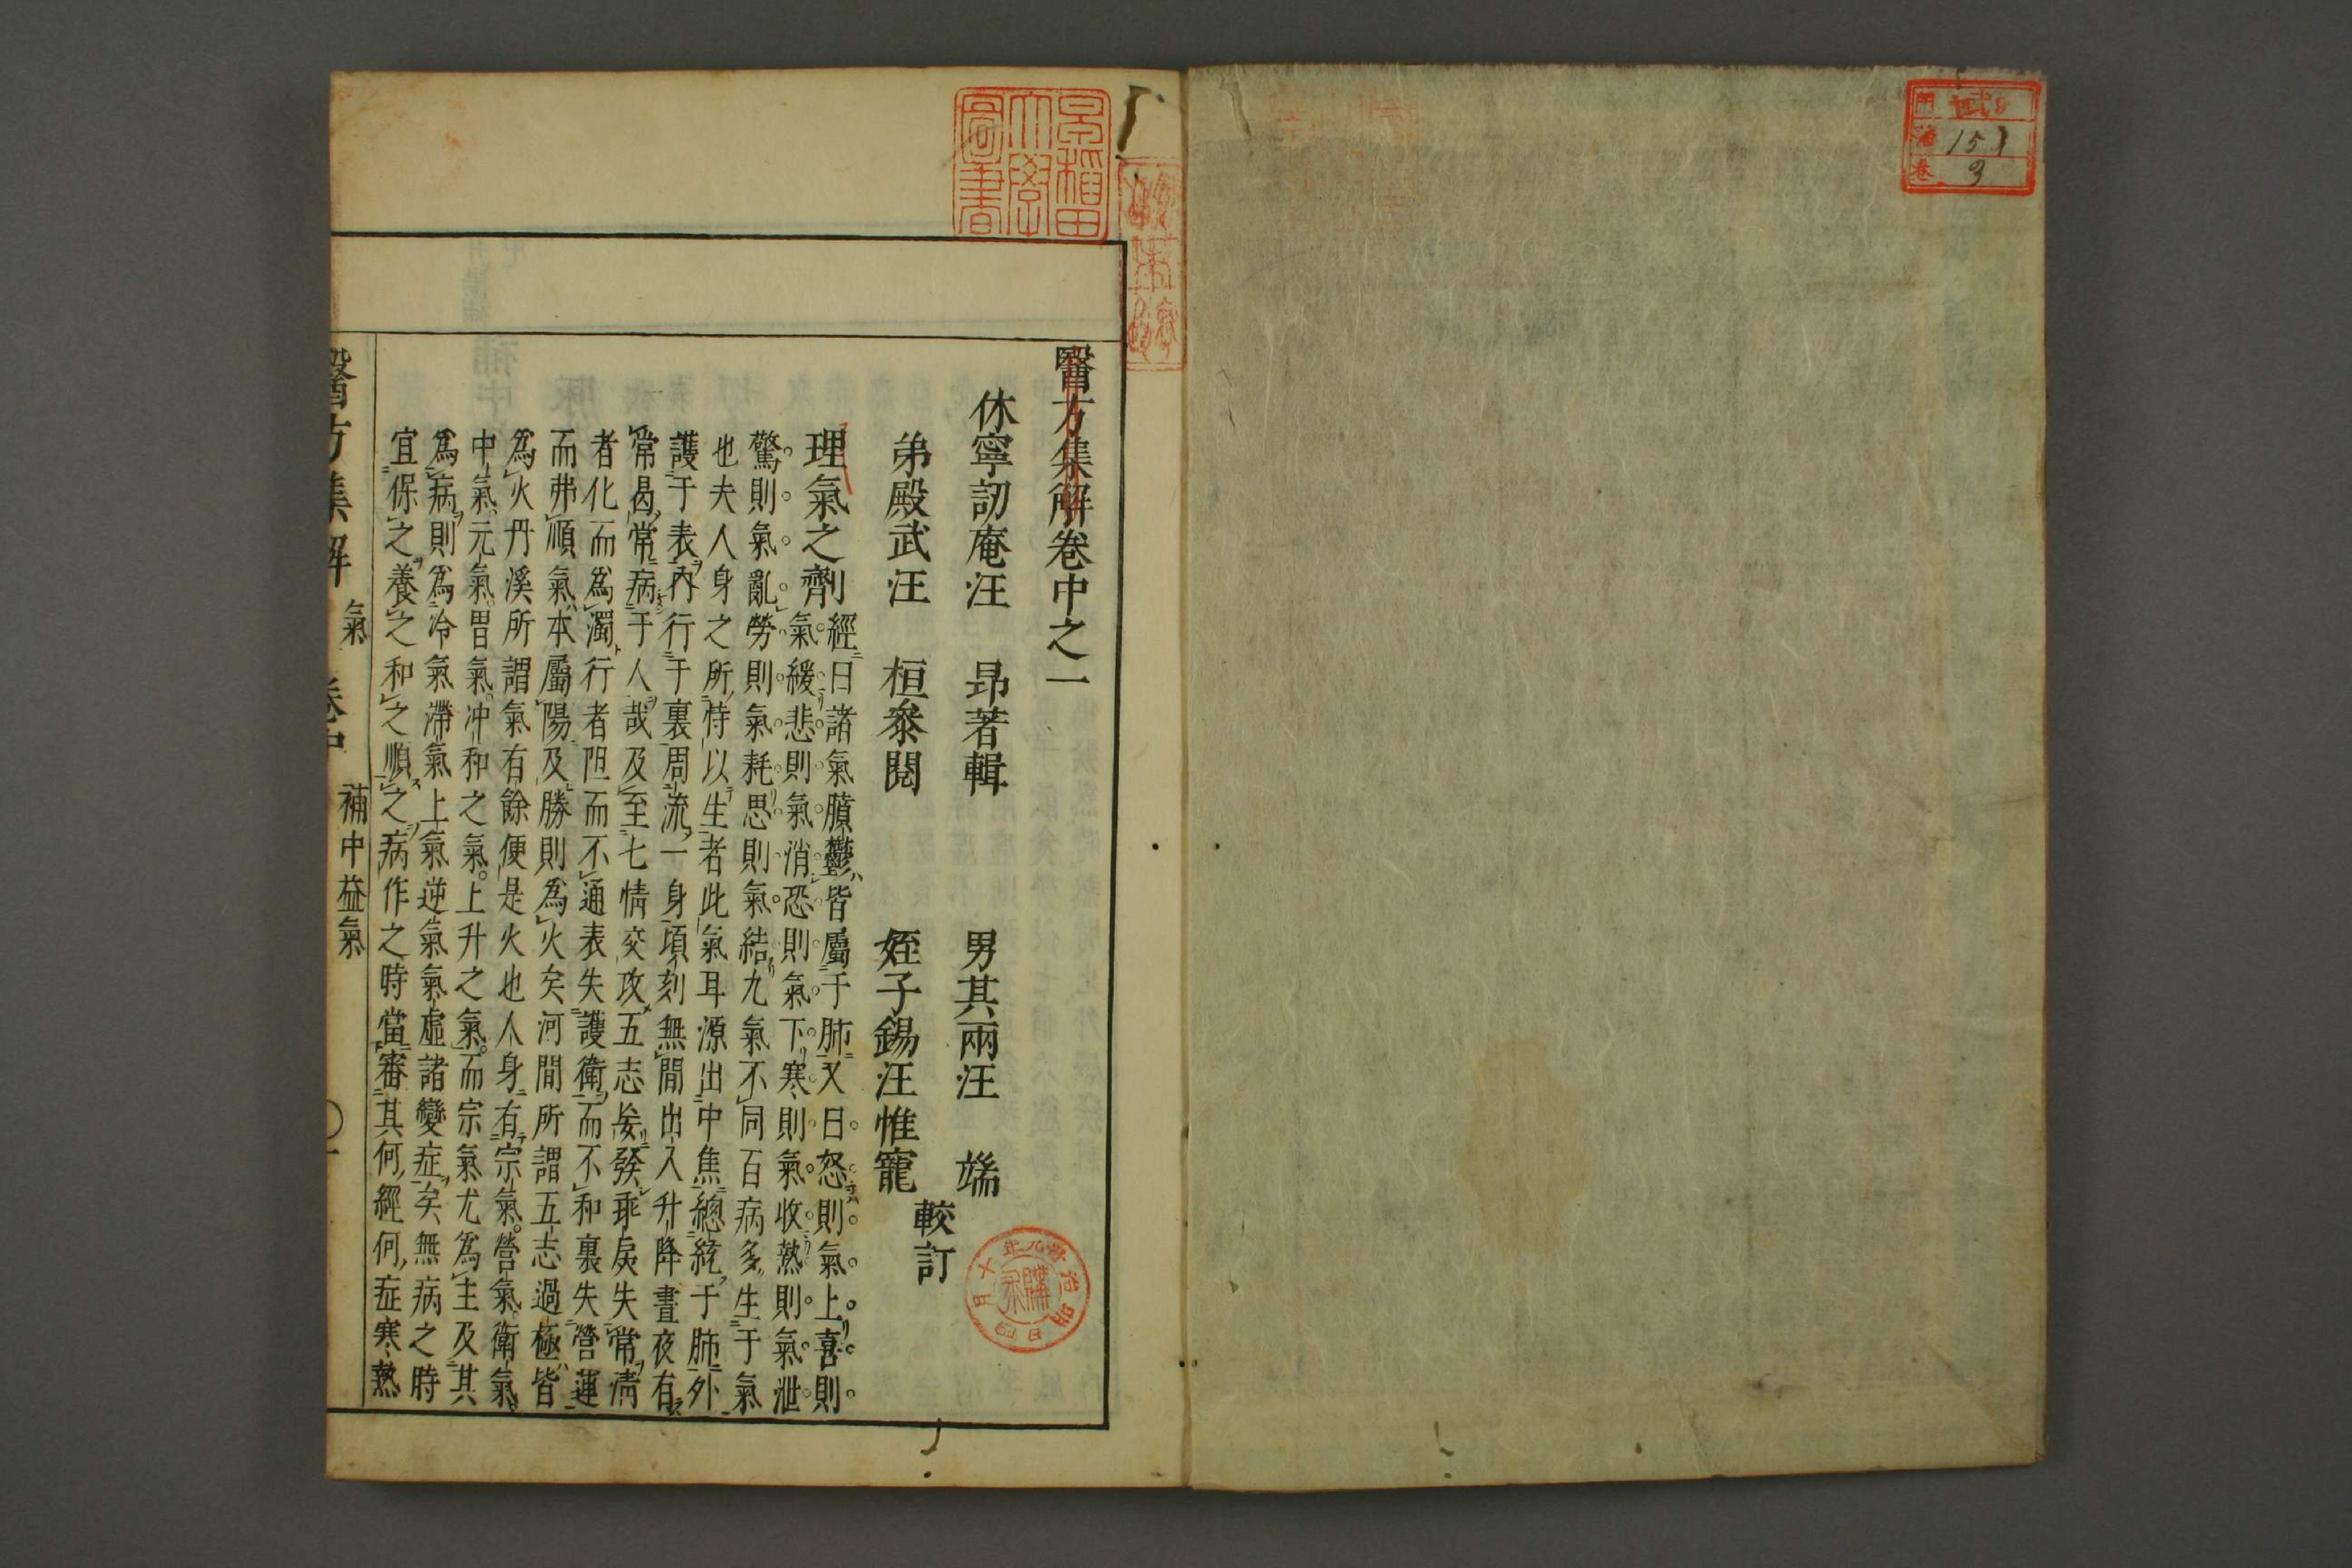 門
番 151
卷 3
早稻田
大學
圖書
醫方集解卷中之一
休寧訒庵汪 昂著輯 男其兩汪 端
弟殿武汪 桓叅閱 姪子錫汪惟寵
較訂
理氣之劑
經曰諸氣膹鬱皆屬于肺又曰怒則氣上喜則
氣緩悲則氣消恐則氣下寒則氣收熱則氣泄
驚則氣亂勞則氣耗思則氣結九氣不同百病多生于氣
也夫人身之所恃以生者此氣耳源出中焦總統于肺外
護于表內行于裏周流一身頃刻無間出入升降晝夜有
常曷常病于人哉及至七情交攻五志妄發乖戾失常清
者化而爲濁行者阻而不通表失護衛而不和裏失營運
而弗順氣本屬陽及勝則爲火矣河間所謂五志過極皆
爲火丹溪所謂氣有餘便是火也人身有宗氣營氣衛氣
中氣元氣胃氣冲和之氣上升之氣而宗氣尤爲主及其
爲病則爲冷氣滯氣上氣逆氣氣虛諸變症矣無病之時
宜保之養之和之順之病作之時當審其何經何症寒熱
醫方集解 氣 卷中 補中益氣 〇一
明治 元年 月 日